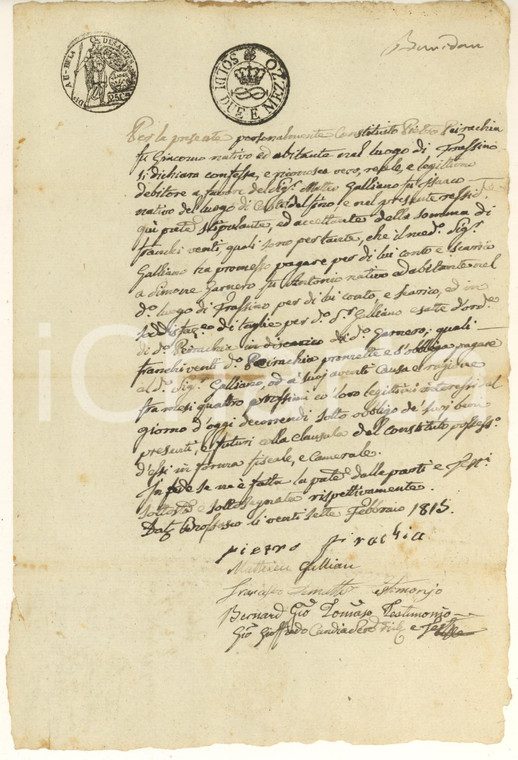 SOLDI DUE E MEZZO
Per la presente personalmente Constituito Pietro Peirachia
fu Giacomo nativo ed abitante nel luogo di Frassino
si dichiara confessa, e riconosce vero, reale, e legittimo
debitore a favore del Sig.r Matteo Galliano fu Marco
nativo del luogo di Casteldelfino e nel presente
quì pnte stipulante, ed accettante della somma di
franchi venti, quali sono per tante, che il med.o Sig.r
Galliano ha promesso pagare per di lui conto e scarico
a Simone Garnero fu Antonio nativo ed abitante nel
d.o luogo di Frassino per di lui conto, e scarico, ed in
di taglie per d.o S.r Galliano
di d.o Peirachia in discarico di d.o Garnero; quali
franchi venti d.o Peirachia promette e s'obbliga pagare
al d.o Sig.r Galliano, od a' suoi aventi Causa e ragione
fra mesi quattro prossimi co' loro legittimi interessi dal
giorno d'oggi decorrendi sotto obbligo de' suoi beni
presenti, e futuri colla clausola del Constituto possess.o
d'essi in forma fiscale, e Camerale.
In fede se ne è fatta la pnte dalle parti e
sottosegnata rispettivamente.
li venti sette Febbraio 1815.
pietro pirachia
Mathieu Gallian
Francesco testimonio
Bernard Gio Tomaso Testimonio
Gio e
iC